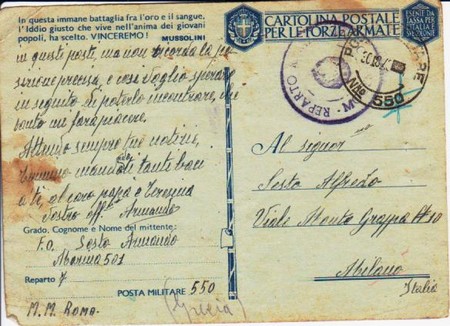 In questa immane battaglia fra l'oro e il sangue,
l'Iddio giusto che vive nell'anima dei giovani
popoli, ha scelto. VINCEREMO! MUSSOLINI
in questi posti, ma non ricorda la po
sizione precisa, e così voglio sperare
in seguito di poterlo incontrare, mi
farà piacere.
Attendo sempre tue notizie,
mandandoti tanti baci
a te, al caro papà e Teresina
Vostro aff. Armando
Grado, Cognome e Nome del mittente:
F.O. Sesto Armando
Marina 501
Reparto 7
POSTA MILITARE 550
M.M. Roma.
(Grecia)
CARTOLINA POSTALE
PER LE FORZE ARMATE
ESENTE DA
TASSA PER
L'ITALIA E
REPARTO
550
Al signor
Sesto Alfredo
Viale Monte Grappa N° 10
Milano
Italia